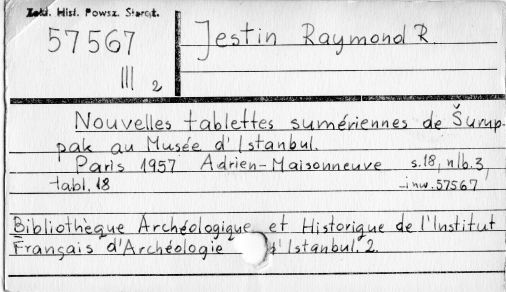 Zakł. Hist. Powsz. Starożt.
57567
III 2
Jestin Raymond R.
Nouvelles tablettes sumériennes de Šurup-
pak au Musée d'Istanbul.
Paris 1957 Adrien-Maisonneuve s.18, nlb.3,
tabl. 18 inw. 57567
Bibliothèque Archéologique et Historique de l'Institut
Français d'Archéologie d'Istanbul. 2.